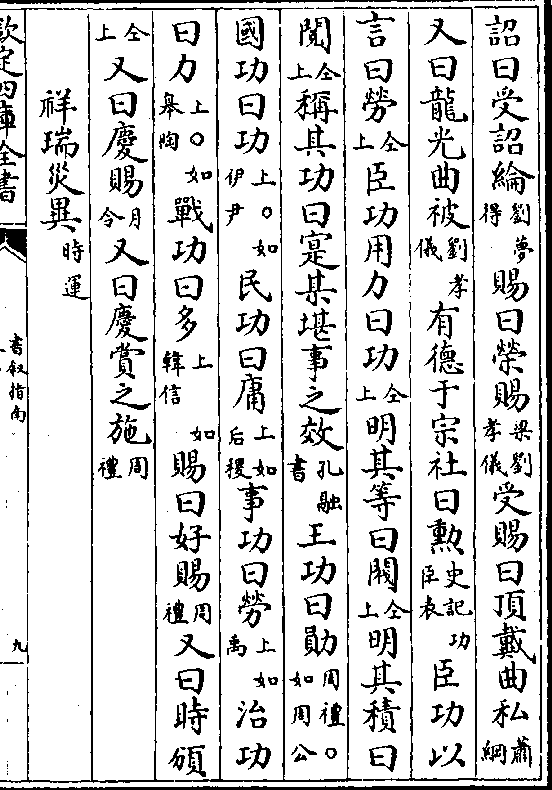 詔曰受詔綸劉夢得賜曰榮賜梁劉孝儀受賜曰頂戴曲私蕭綱
又曰龍光曲被劉孝儀有德于宗社曰勲史記功臣表臣功以
言曰勞仝上臣功用力曰功仝上明其等曰閥仝上明其積曰
閱仝上稱其功曰寔某堪事之效孔融書王功曰勛周禮○如周公
國功曰功上○如伊尹民功曰庸上如后稷事功曰勞上如禹治功
曰力上○如皋陶戰功曰多上如韓信賜曰好賜周禮又曰時頒
仝上又曰慶賜月令又曰慶賞之施周禮
祥瑞災異時運
欽定四庫全書
書叙指南
九